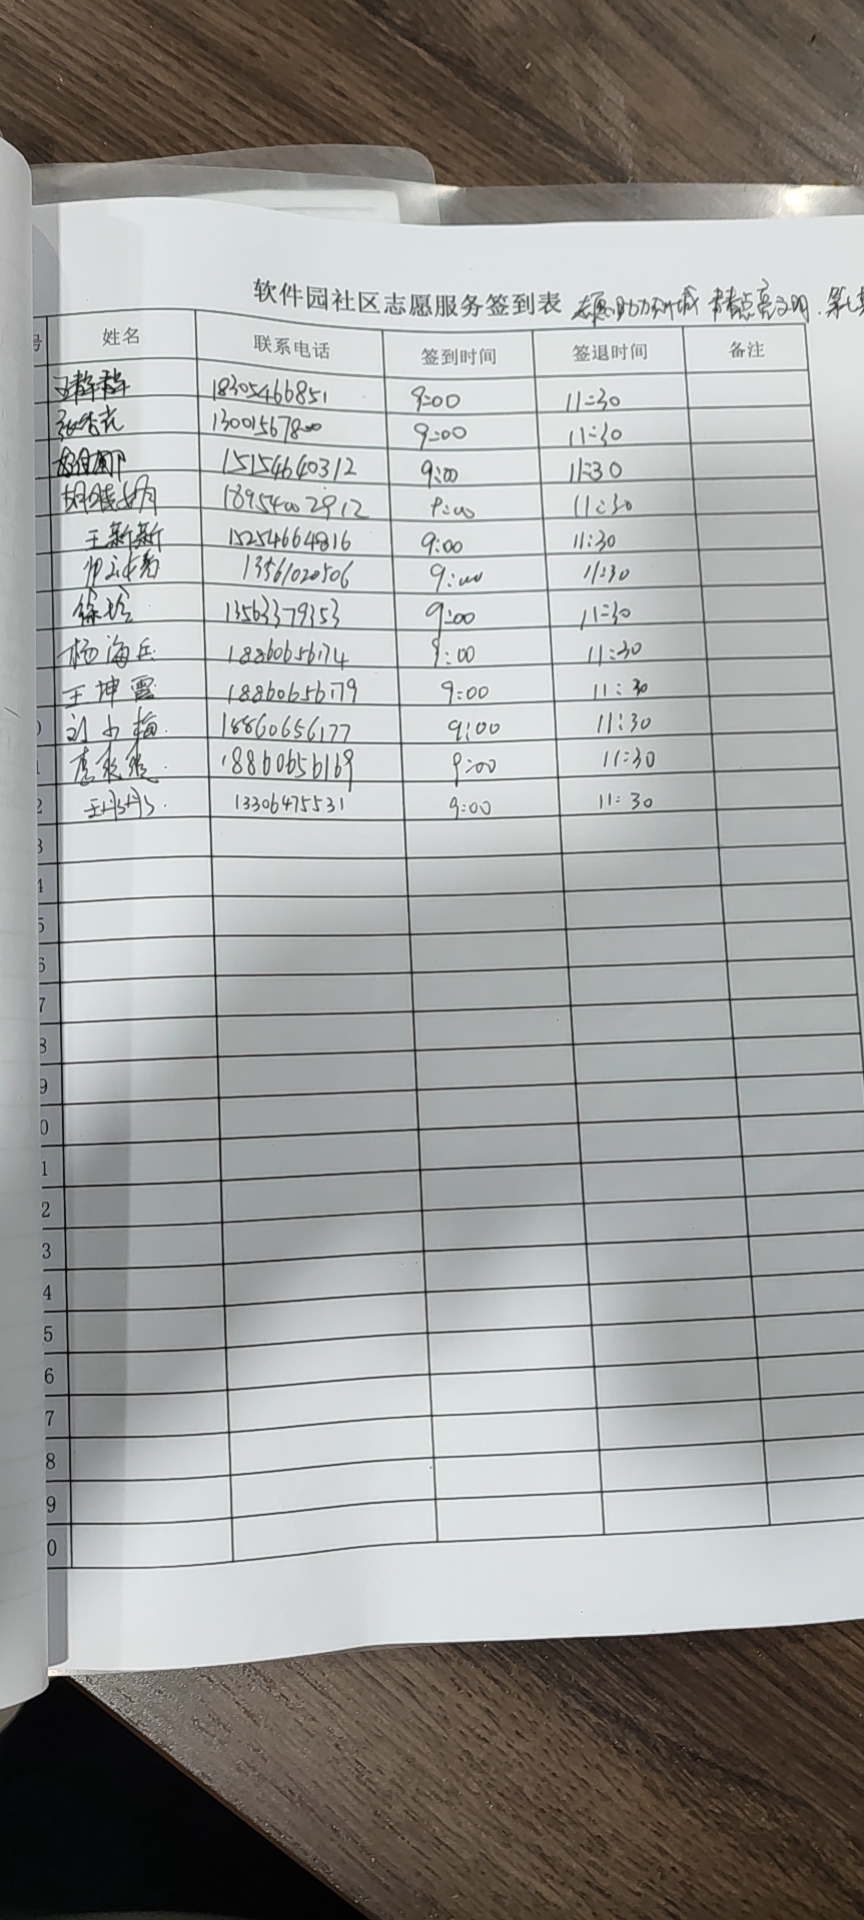 软件园社区志愿服务签到表 志愿助力 点亮文明
号 姓名 联系电话 签到时间 签退时间 备注
18305466851 9:00 11:30
13001567800 9:00 11:30
15154640312 9:00 11:30
18954002912 9:00 11:30
王新新 15254664816 9:00 11:30
13561020506 9:00 11:30
徐玲 13563379353 9:00 11:30
杨海兵 18860656174 9:00 11:30
王坤霞 18860656179 9:00 11:30
0 刘小梅 18860656177 9:00 11:30
1 18860656169 9:00 11:30
2 王丹丹 13306475531 9:00 11:30
3
4
5
6
7
8
9
0
1
2
3
4
5
6
7
8
9
0